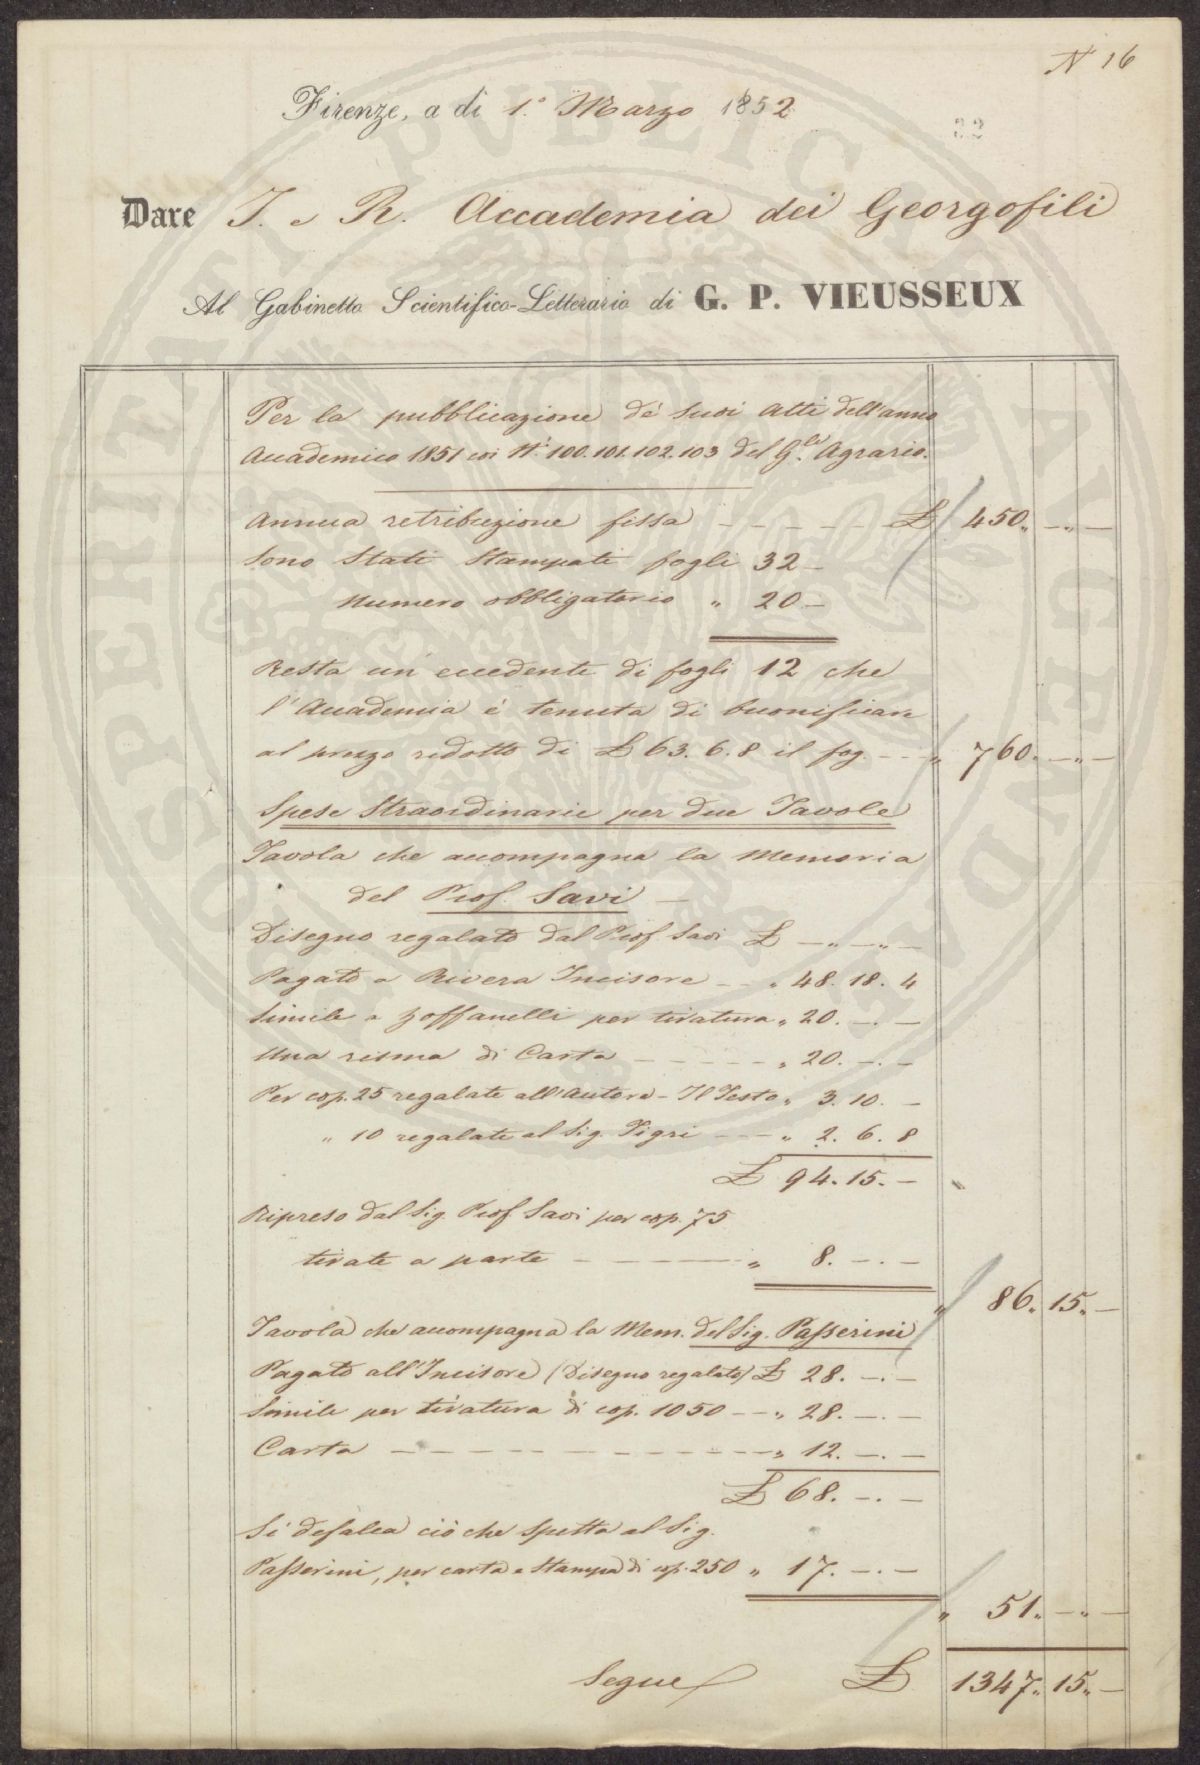 N 16
Firenze, a dì 1.° Marzo 1852
22
Dare I. e R. Accademia dei Georgofili
Al Gabinetto Scientifico-Letterario di G. P. VIEUSSEUX
Per la pubblicazione de' suoi Atti dell'anno
Accademico 1851 coi N.i 100. 101. 102. 103 del G.le Agrario.
Annua retribuzione fissa — — — — — £ 450 „ — „ —
Sono Stati Stampati fogli 32 —
Numero obbligatorio „ 20 —
Resta un eccedente di fogli 12 che
l'Accademia è tenuta di buonificare
al prezzo ridotto di £ 63. 6. 8 il fog. — — „ 760 — „ —
Spese Straordinarie per due Tavole
Tavola che accompagna la Memoria
del Prof. Savi —
Disegno regalato dal Prof. Savi £ — „ — „ —
Pagato a Rivera Incisore — — „ 48. 18. 4
Simile a Zoffanelli per tiratura „ 20. — . —
Una risma di Carta — — — — „ 20. — . —
Per cop. 25 regalate all'Autore - Il Testo „ 3. 10. —
„ 10 regalate al Sig. Tigri — — — „ 2. 6. 8
£ 94. 15. —
Ripreso dal Sig. Prof. Savi per cop. 75
tirate a parte — — — — — „ 8. — . —
„ 86 „ 15 „ —
Tavola che accompagna la Mem. del Sig. Passerini
Pagato all'Incisore (Disegno regalato) £ 28. — . —
Simile per tiratura di cop. 1050 — — „ 28. — . —
Carta — — — — — — — — „ 12. — . —
£ 68. — . —
Si defalca ciò che spetta al Sig.
Passerini, per carta e Stampa di cop. 250 „ 17. — . —
„ 51 „ — „ —
Segue £ 1347 „ 15 „ —
PROSPERITATI PUBLICAE AUGENDAE